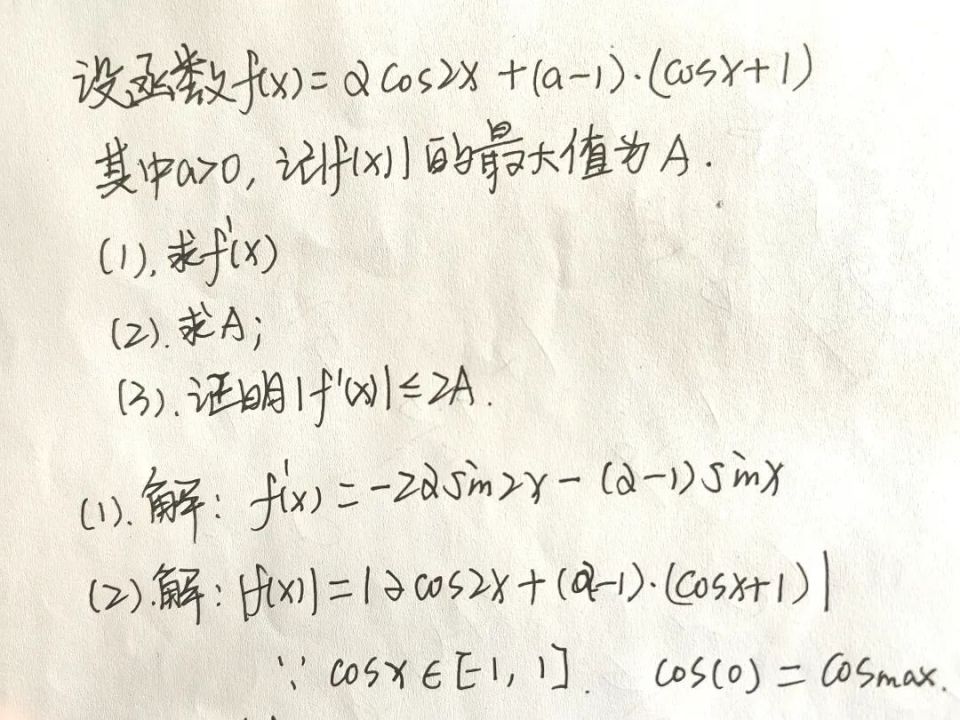 设函数f(x)=acos2x+(a-1)·(cosx+1)
其中a>0,记|f(x)|的最大值为A.
(1).求f'(x)
(2).求A;
(3).证明|f'(x)|≤2A.
(1).解:f'(x)=-2asin2x-(a-1)sinx
(2).解:|f(x)|=|acos2x+(a-1)·(cosx+1)|
∵cosx∈[-1,1]. cos(0)=cosmax.